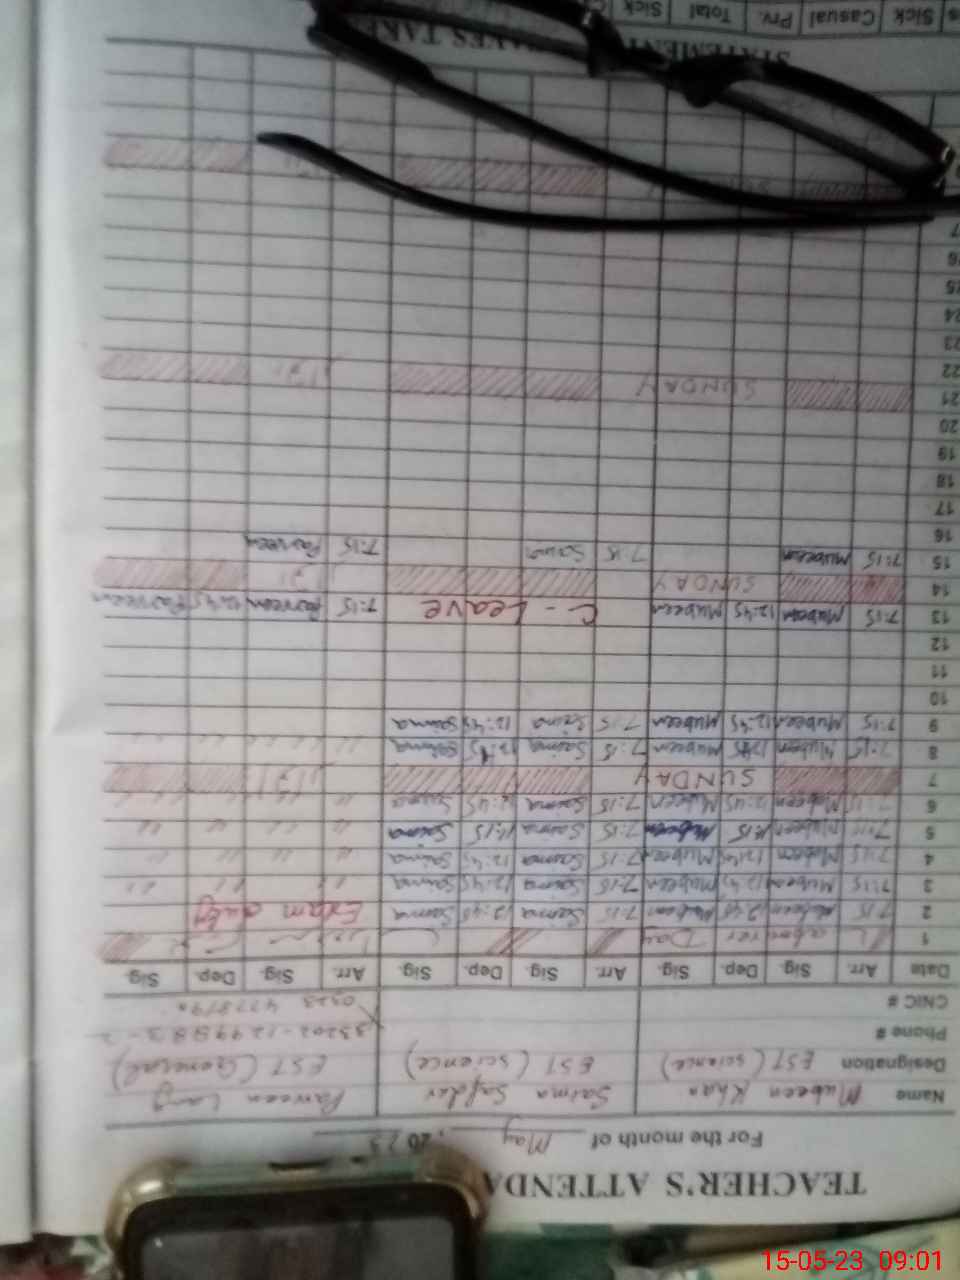 TEACHER'S ATTENDA
For the month of May, 2023
Name Mubeen Khan Saima Safdar Parveen
Designation EST (science) EST (science) EST (General)
Phone #
CNIC # 0323
Date Arr. Sig. Dep. Sig. Arr. Sig. Dep. Sig. Arr. Sig. Dep. Sig.
1 Day
2 7:15 Mubeen 12:45 Mubeen 7:15 Saima 12:45 Saima Exam duty
3 7:15 Mubeen 12:45 Mubeen 7:15 Saima 12:45 Saima " " " "
4 7:15 Mubeen 12:45 Mubeen 7:15 Saima 12:45 Saima " " " "
5 7:15 Mubeen 11:15 Mubeen 7:15 Saima 11:15 Saima " " " "
6 7:15 Mubeen 12:45 Mubeen 7:15 Saima 12:45 Saima " " " "
7 SUNDAY
8 7:15 Mubeen 12:45 Mubeen 7:15 Saima 12:45 Saima " " " "
9 7:15 Mubeen 12:45 Mubeen 7:15 Saima 12:45 Saima " " " "
10
11
12
13 7:15 Mubeen 12:45 Mubeen C-Leave 7:15 Parveen 12:45 Parveen
14 SUNDAY
15 7:15 Mubeen 7:15 Saima 7:15 Parveen
16
17
18
19
20
21 SUNDAY
22
23
24
25
26
STATEMENT
Sick Casual Prv. Total Sick
15-05-23 09:01